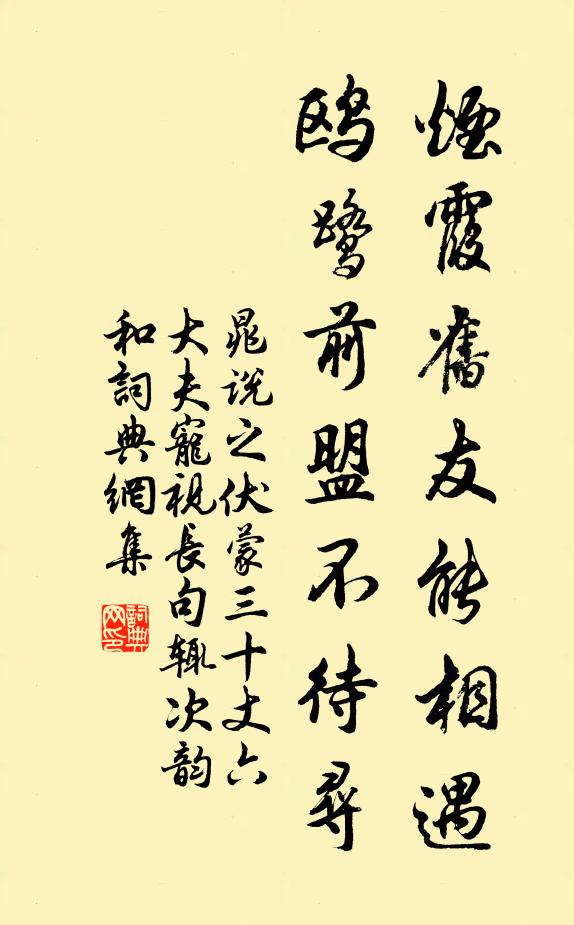 煙霞舊友能相遇
鸥鹭前盟不待尋
晁说之伏蒙三十丈六
大夫寵視長句辄次韵
和詞典網集
詞典网印